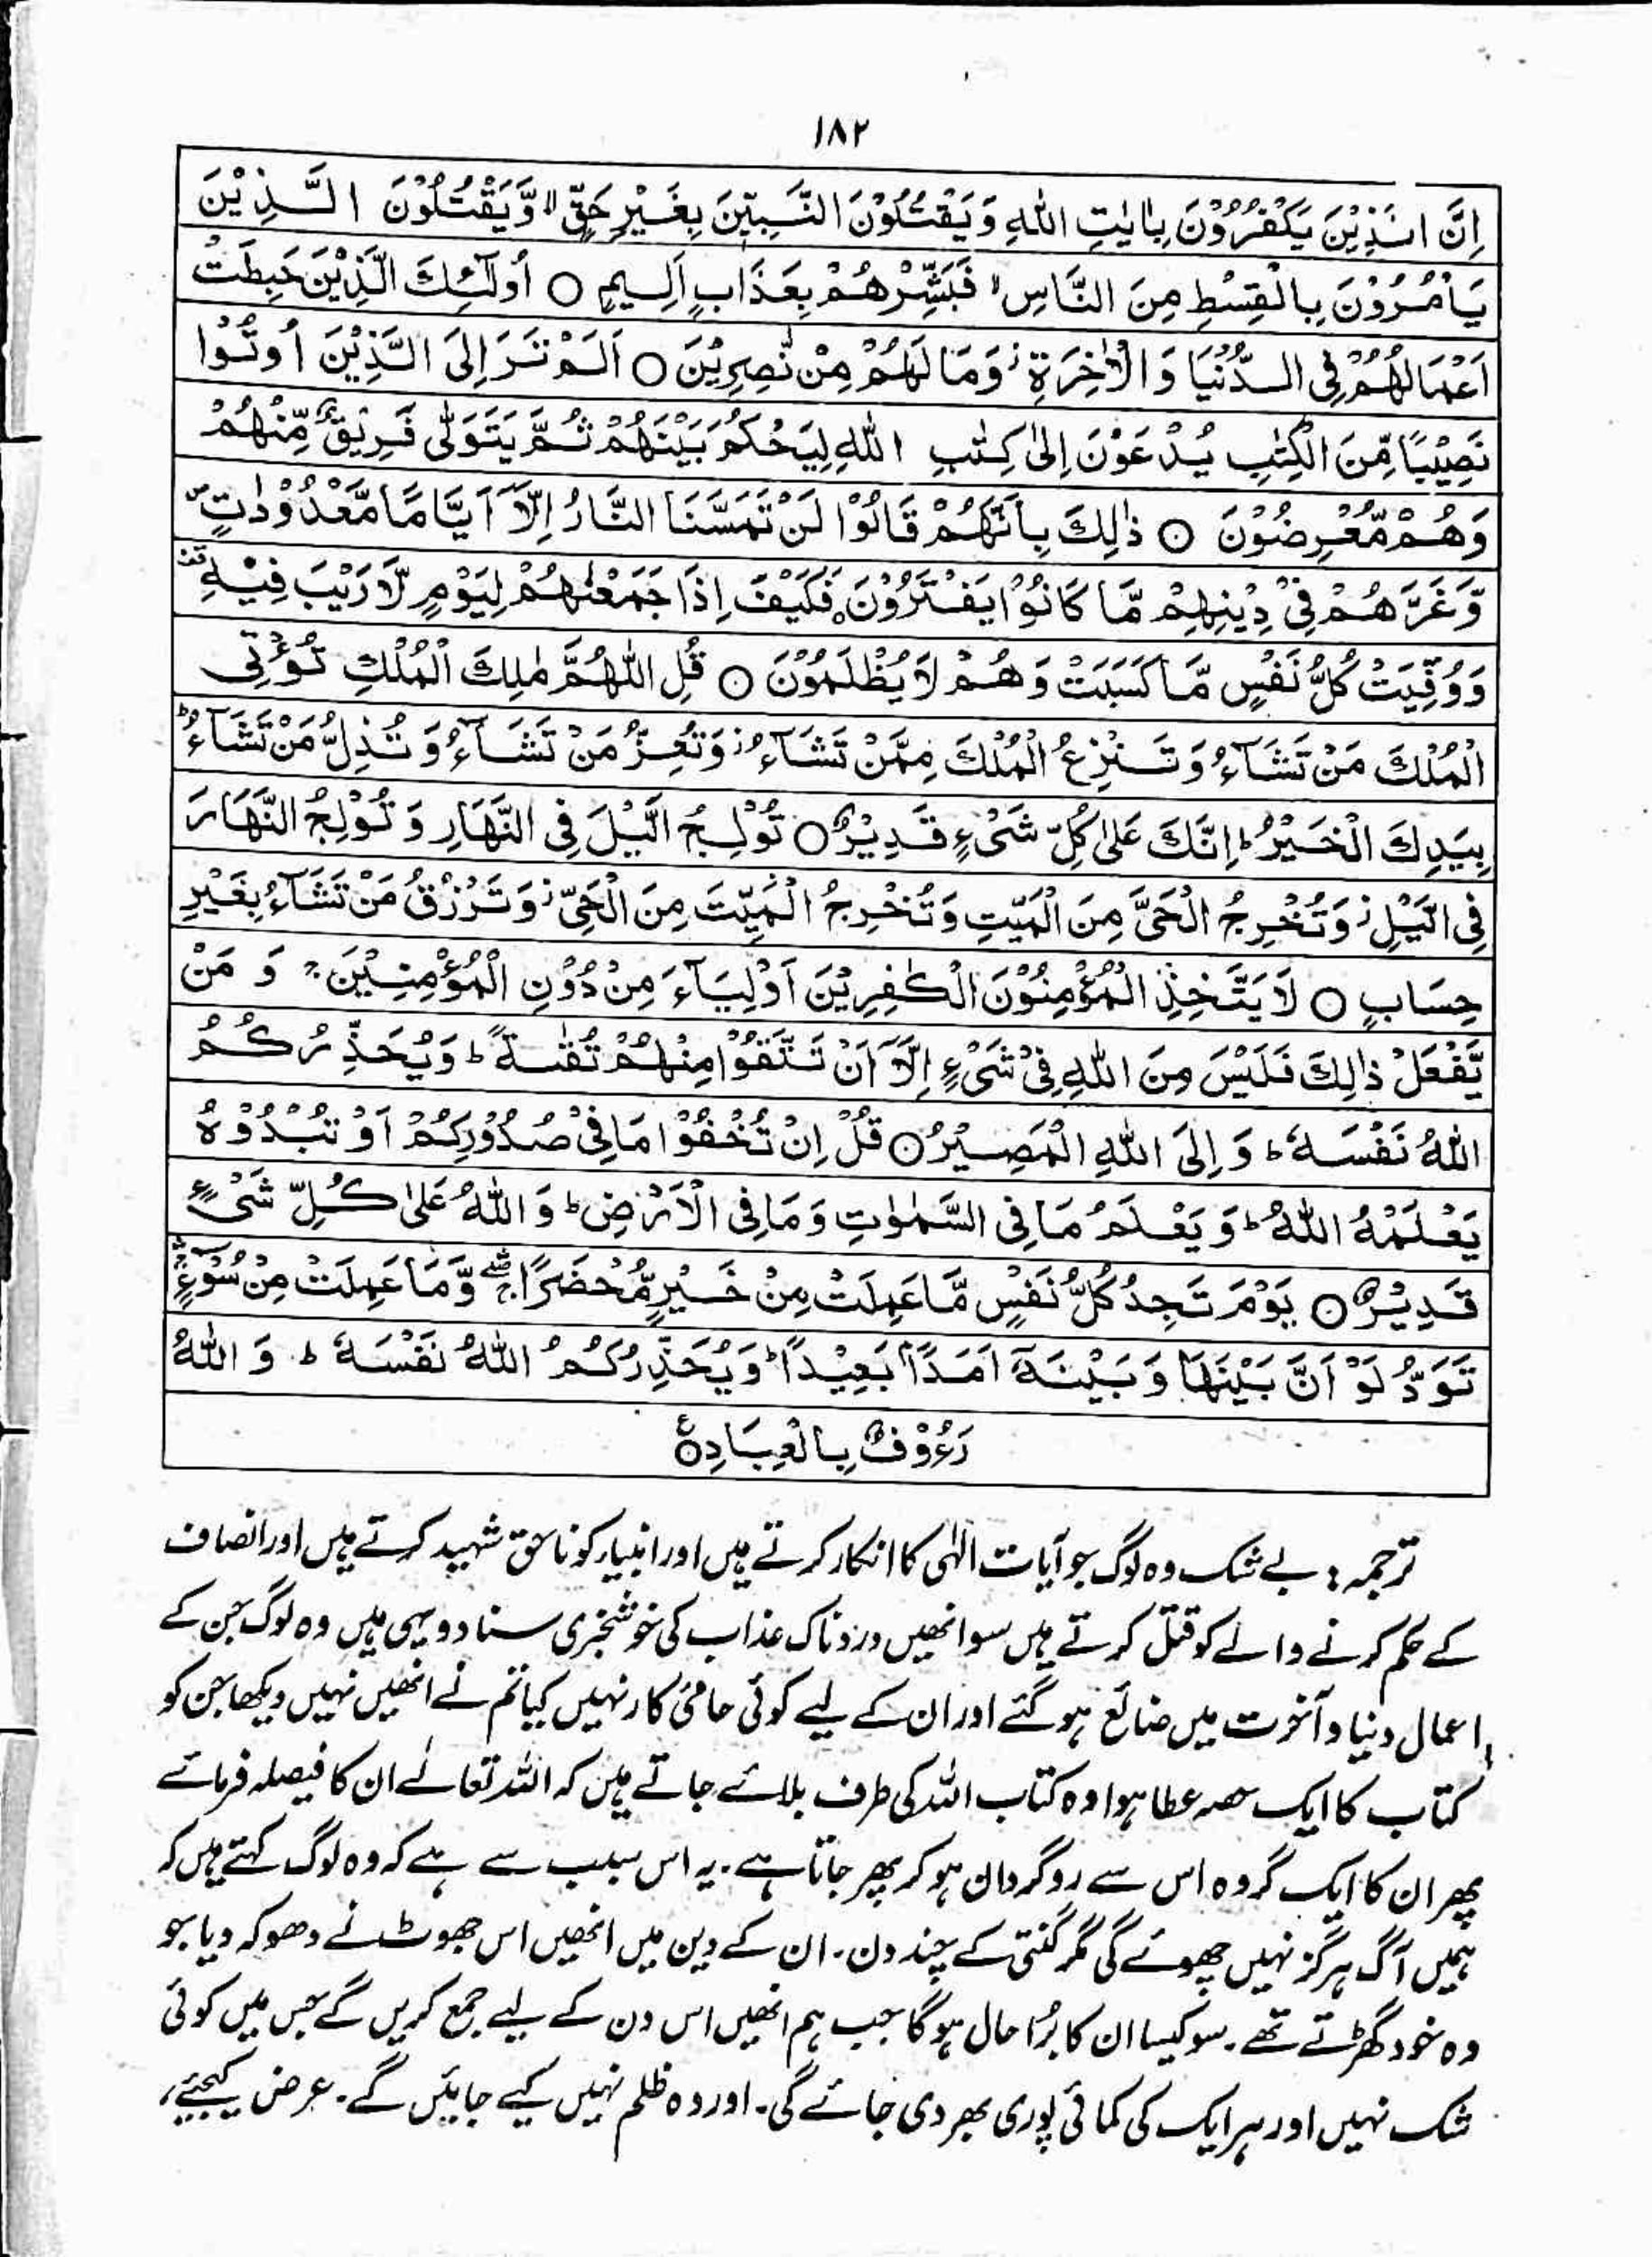 ١٨٢
اِنَّ الَّذِیْنَ یَكْفُرُوْنَ بِاٰیٰتِ اللّٰهِ وَ یَقْتُلُوْنَ النَّبِیّٖنَ بِغَیْرِ حَقٍّ ۙ وَّ یَقْتُلُوْنَ الَّذِیْنَ
یَاْمُرُوْنَ بِالْقِسْطِ مِنَ النَّاسِ ۙ فَبَشِّرْهُمْ بِعَذَابٍ اَلِیْمٍ ○ اُولٰٓئِكَ الَّذِیْنَ حَبِطَتْ
اَعْمَالُهُمْ فِی الدُّنْیَا وَ الْاٰخِرَةِ ؗ وَ مَا لَهُمْ مِّنْ نّٰصِرِیْنَ ○ اَلَمْ تَرَ اِلَی الَّذِیْنَ اُوْتُوْا
نَصِیْبًا مِّنَ الْكِتٰبِ یُدْعَوْنَ اِلٰی كِتٰبِ اللّٰهِ لِیَحْكُمَ بَیْنَهُمْ ثُمَّ یَتَوَلّٰی فَرِیْقٌ مِّنْهُمْ
وَ هُمْ مُّعْرِضُوْنَ ○ ذٰلِكَ بِاَنَّهُمْ قَالُوْا لَنْ تَمَسَّنَا النَّارُ اِلَّاۤ اَیَّامًا مَّعْدُوْدٰتٍ ۪
وَّ غَرَّهُمْ فِیْ دِیْنِهِمْ مَّا كَانُوْا یَفْتَرُوْنَ ○ فَكَیْفَ اِذَا جَمَعْنٰهُمْ لِیَوْمٍ لَّا رَیْبَ فِیْهِ
وَ وُفِّیَتْ كُلُّ نَفْسٍ مَّا كَسَبَتْ وَ هُمْ لَا یُظْلَمُوْنَ ○ قُلِ اللّٰهُمَّ مٰلِكَ الْمُلْكِ تُؤْتِی
الْمُلْكَ مَنْ تَشَآءُ وَ تَنْزِعُ الْمُلْكَ مِمَّنْ تَشَآءُ ؗ وَ تُعِزُّ مَنْ تَشَآءُ وَ تُذِلُّ مَنْ تَشَآءُ ؕ
بِیَدِكَ الْخَیْرُ ؕ اِنَّكَ عَلٰی كُلِّ شَیْءٍ قَدِیْرٌ ○ تُوْلِجُ الَّیْلَ فِی النَّهَارِ وَ تُوْلِجُ النَّهَارَ
فِی الَّیْلِ ؗ وَ تُخْرِجُ الْحَیَّ مِنَ الْمَیِّتِ وَ تُخْرِجُ الْمَیِّتَ مِنَ الْحَیِّ ؗ وَ تَرْزُقُ مَنْ تَشَآءُ بِغَیْرِ
حِسَابٍ ○ لَا یَتَّخِذِ الْمُؤْمِنُوْنَ الْكٰفِرِیْنَ اَوْلِیَآءَ مِنْ دُوْنِ الْمُؤْمِنِیْنَ ۚ وَ مَنْ
یَّفْعَلْ ذٰلِكَ فَلَیْسَ مِنَ اللّٰهِ فِیْ شَیْءٍ اِلَّاۤ اَنْ تَتَّقُوْا مِنْهُمْ تُقٰىةً ؕ وَ یُحَذِّرُكُمُ
اللّٰهُ نَفْسَهٗ ؕ وَ اِلَی اللّٰهِ الْمَصِیْرُ ○ قُلْ اِنْ تُخْفُوْا مَا فِیْ صُدُوْرِكُمْ اَوْ تُبْدُوْهُ
یَعْلَمْهُ اللّٰهُ ؕ وَ یَعْلَمُ مَا فِی السَّمٰوٰتِ وَ مَا فِی الْاَرْضِ ؕ وَ اللّٰهُ عَلٰی كُلِّ شَیْءٍ
قَدِیْرٌ ○ یَوْمَ تَجِدُ كُلُّ نَفْسٍ مَّا عَمِلَتْ مِنْ خَیْرٍ مُّحْضَرًا ۛۚ وَّ مَا عَمِلَتْ مِنْ سُوْٓءٍ ۛۚ
تَوَدُّ لَوْ اَنَّ بَیْنَهَا وَ بَیْنَهٗۤ اَمَدًۢا بَعِیْدًا ؕ وَ یُحَذِّرُكُمُ اللّٰهُ نَفْسَهٗ ؕ وَ اللّٰهُ
رَءُوْفٌۢ بِالْعِبَادِ ○ ع
ترجمہ : بے شک وہ لوگ جو آیات الٰہی کا انکار کرتے ہیں اور انبیاء کو ناحق شہید کرتے ہیں اور انصاف
کے حکم کرنے والے کو قتل کرتے ہیں سو انھیں دردناک عذاب کی خوشخبری سنا دو یہی ہیں وہ لوگ جن کے
اعمال دنیا و آخرت میں ضائع ہو گئے اور ان کے لیے کوئی حامئ کار نہیں کیا تم نے انھیں نہیں دیکھا جن کو
کتاب کا ایک حصہ عطا ہوا وہ کتاب اللہ کی طرف بلائے جاتے ہیں کہ اللہ تعالےٰ ان کا فیصلہ فرمائے
پھر ان کا ایک گروہ اس سے روگردان ہو کر پھر جاتا ہے۔ یہ اس سبب سے ہے کہ وہ لوگ کہتے ہیں کہ
ہمیں آگ ہرگز نہیں چھوئے گی مگر گنتی کے چند دن۔ ان کے دین میں انھیں اس جھوٹ نے دھوکہ دیا جو
وہ خود گھڑتے تھے۔ سو کیسا ان کا بُرا حال ہو گا جب ہم انھیں اس دن کے لیے جمع کریں گے جس میں کوئی
شک نہیں اور ہر ایک کی کمائی پوری بھر دی جائے گی۔ اور وہ ظلم نہیں کیے جائیں گے۔ عرض کیجیے،